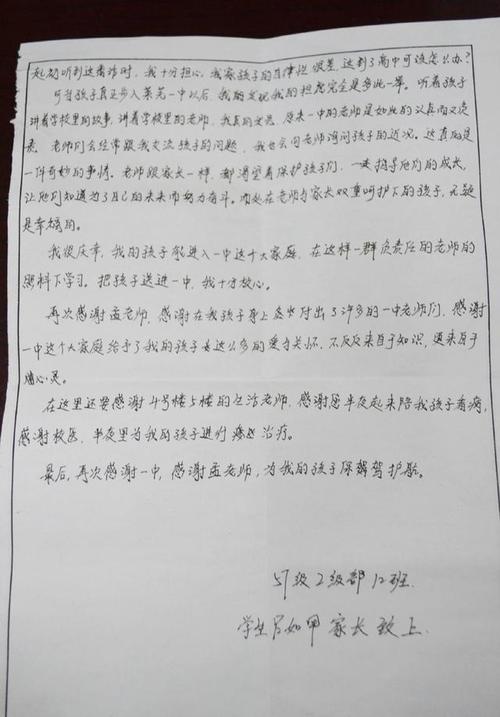 起初听到这番话时，我十分担心，我家孩子的自律性很差，这到了高中可该怎么办？
可当孩子真正步入莱芜一中以后，我的发现我的担忧完全是多此一举。听着孩子
讲着学校里的故事，讲着学校里的老师，我真的发觉，原来一中的老师是如此的认真而又负
责。老师们会经常跟我交流孩子的问题，我也会向老师询问孩子的近况。这真的是
一件奇妙的事情。老师跟家长一样，都渴望着保护孩子们，一点指导他们的成长，
让他们知道为了自己的未来而努力奋斗。而处在老师与家长双重呵护下的孩子，无疑
是幸福的。
我很庆幸，我的孩子能进入一中这个大家庭，在这样一群负责任的老师的
照料下学习。把孩子送进一中，我十分放心。
再次感谢孟老师，感谢在我孩子身上付出了许多的一中老师们，感谢
一中这个大家庭给予了我的孩子这么多的爱与关怀，不仅仅来自于知识，更来自于
心灵。
在这里还要感谢4号楼5楼的生活老师，感谢您半夜起来陪我孩子看病，
感谢校医，半夜里为我的孩子进行治疗。
最后，再次感谢一中，感谢孟老师，为我的孩子保驾护航。
57级2级部12班
学生吕如甲 家长 致上